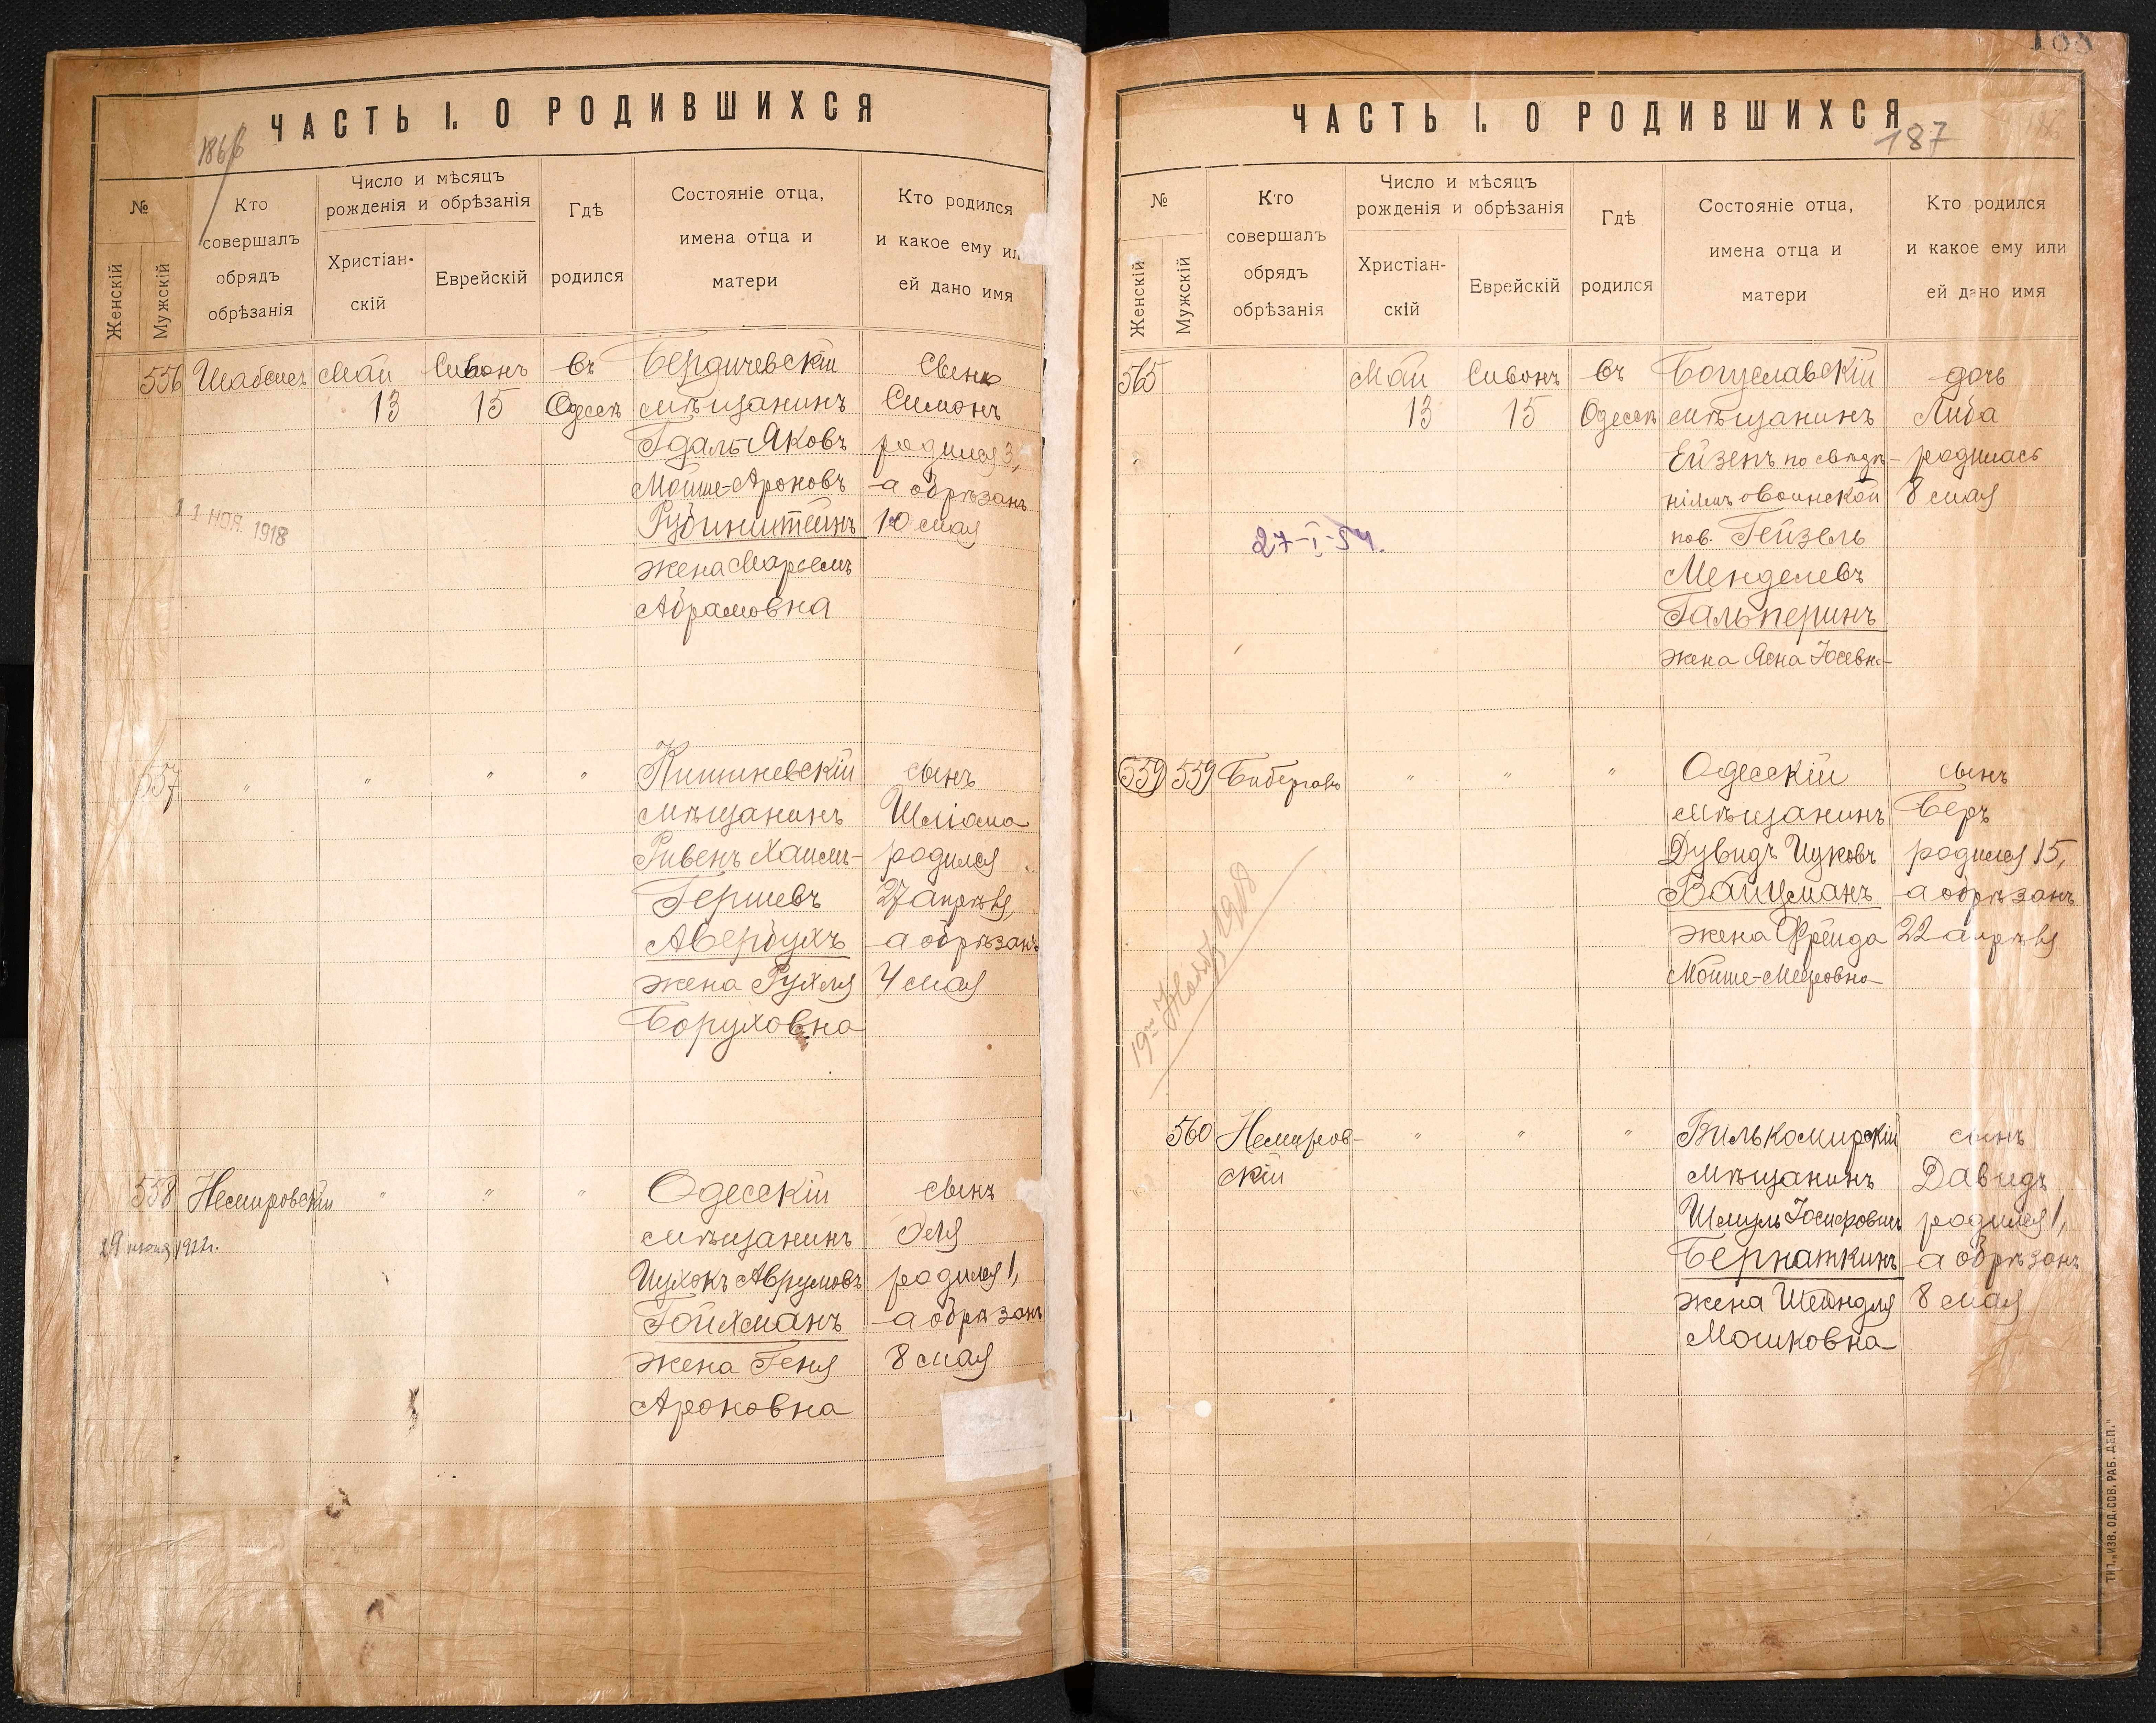 ЧАСТЬ I. О РОДИВШИХСЯ
№
Женскій
Мужскій
Кто
совершалъ
обрядъ
обрѣзанія
Число и мѣсяцъ
рожденія и обрѣзанія
Христіан-
скій
Еврейскій
Гдѣ
родился
Состояніе отца,
имена отца и
матери
Кто родился
и какое ему или
ей дано имя
556
Май
13
Сивонъ
15
въ
Одессѣ
Бердичевскій
мѣщанинъ
Гдаль-Яковъ
Мойше-Ароновъ
Рубинштейнъ
жена Марьемъ
Абрамовна
сынъ
Симонъ
родился 3,
а обрѣзанъ
10 мая
11 НОЯ. 1918
557
"
"
"
"
Кишиневскій
мѣщанинъ
Ривенъ Хаимъ-
Гершевъ
Авербухъ
жена Рухля
Боруховна
сынъ
Шліома
родился
27 апрѣля,
а обрѣзанъ
4 мая
558
Немировскій
"
"
"
Одесскій
мѣщанинъ
Ицхокъ Аврумовъ
Гойхманъ
жена Геня
Ароновна
сынъ
родился 1,
а обрѣзанъ
8 мая
188
ЧАСТЬ I. О РОДИВШИХСЯ
187
№
Женскій
Мужскій
Кто
совершалъ
обрядъ
обрѣзанія
Число и мѣсяцъ
рожденія и обрѣзанія
Христіан-
скій
Еврейскій
Гдѣ
родился
Состояніе отца,
имена отца и
матери
Кто родился
и какое ему или
ей дано имя
565
Май
13
Сивонъ
15
въ
Одессѣ
Богуславскій
мѣщанинъ
Ейзенъ по свѣдѣ-
ніямъ о воинской
пов. Гейзель
Менделевъ
Гальперинъ
жена Яена Іосевн-
дочь
Либа
родилась
8 мая
27-I-54.
559
559
"
"
"
Одесскій
мѣщанинъ
Дувидъ Ицковъ
Вайцманъ
жена Фрейда
Мойше-Мееровна
сынъ
Беръ
родился 15,
а обрѣзанъ
22 апрѣля
19го Нояб 1918
560
Немиров-
скій
"
"
"
Вилькомирскій
мѣщанинъ
Шмуль Іосифовичъ
Бернаткинъ
жена Шейндля
Мошковна
сынъ
Давидъ
родился 1,
а обрѣзанъ
8 мая
ТИП. „ИЗВ. ОД. СОВ. РАБ. ДЕП."